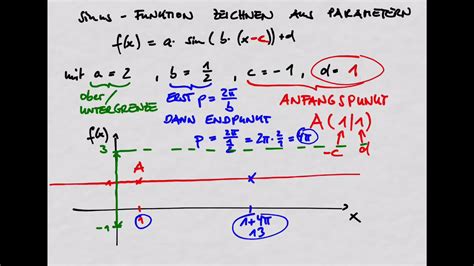 SINUS - FUNKTION ZEICHNEN AUS PARAMETERN
f(x) = a · sin (b · (x-c)) + d
mit a = 2 , b = 1/2 , c = -1 , d = 1
ober/ UNTERGRENZE
ERST p = 2π/b
ANFANGSPUNKT
DANN ENDPUNKT
A (1|1)
p = 2π/(1/2) = 2π · 2/1 = 4π
-c d
f(x)
3
A
-1
1
1+4π
13
x